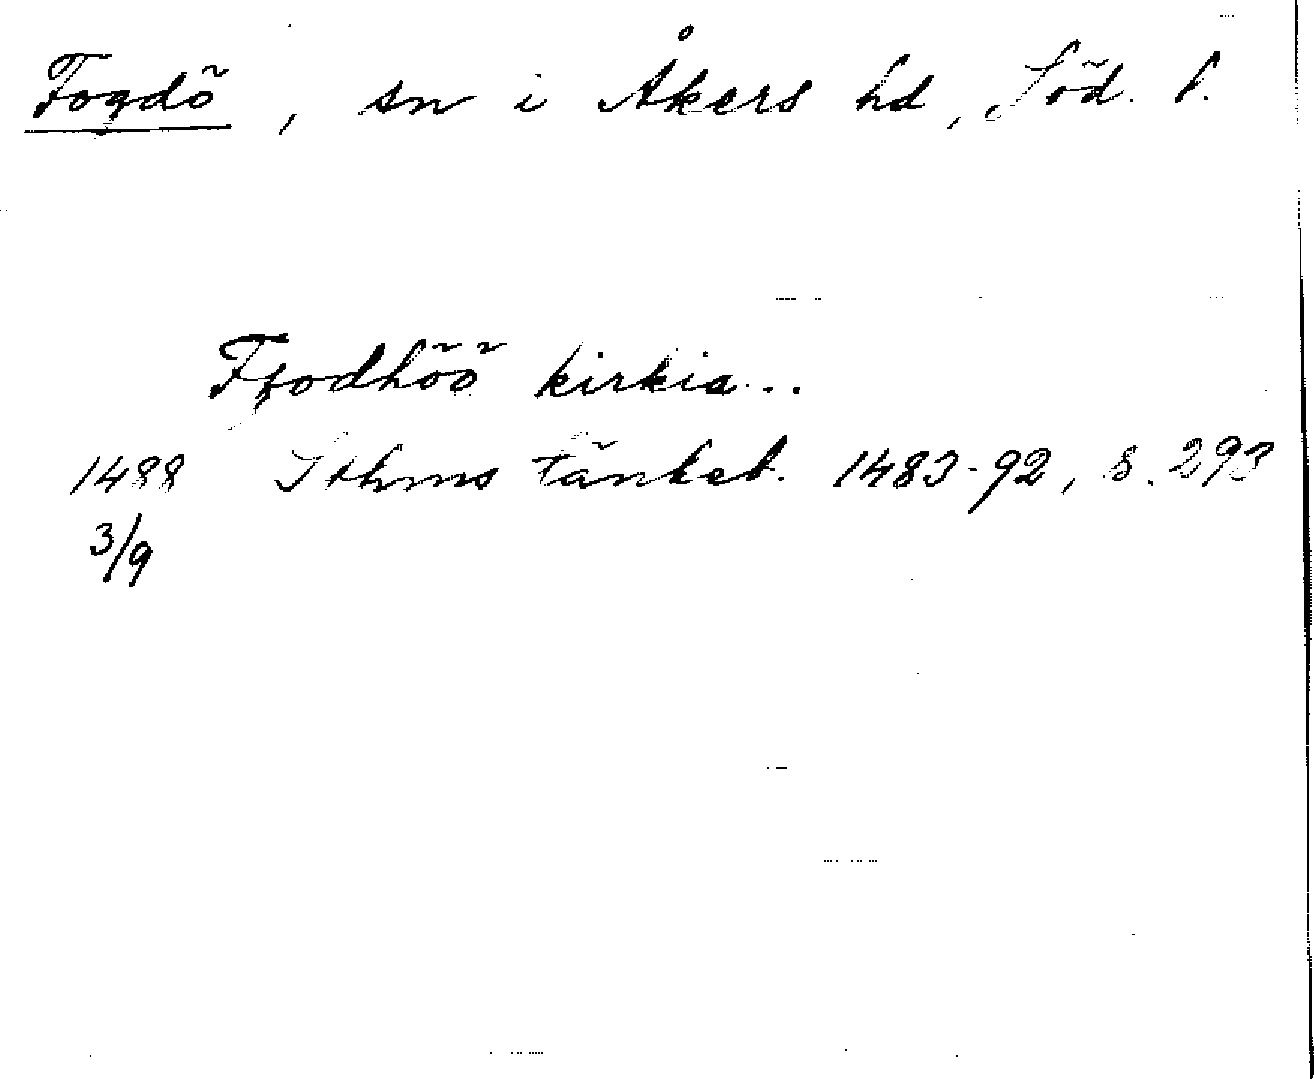 Fogdö, sn i Åkers hd, Söd. l.
Ffodhöö kirkia...
1488 Sthms tänkeb. 1483-92, s. 293
3/9